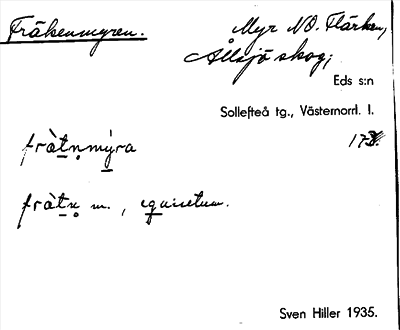 Fräkenmyren. Myr NO. Flärken,
Allsjö skog;
Eds s:n
Sollefteå tg., Västernorrl. l.
fràtn̥mýra
fràtn̥ m., equisetum.
Sven Hiller 1935.